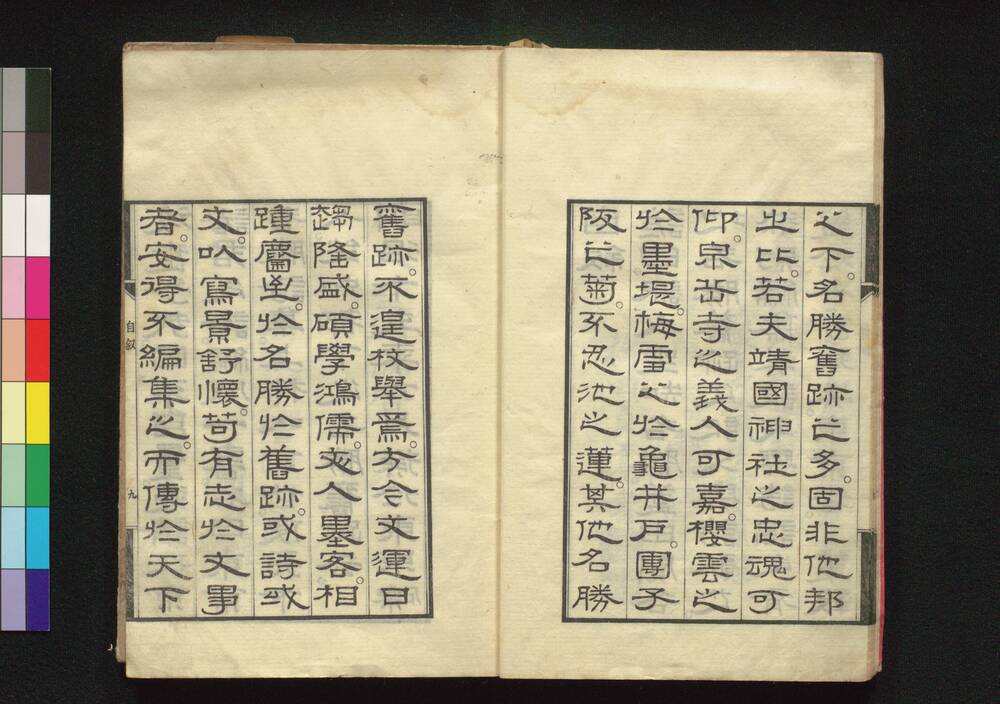 之下。名勝舊跡之多。固非他邦
之比。若夫靖國神社之忠魂可
仰。泉岳寺之義人可嘉。櫻雲之
於墨堤。梅雪之於龜井戶。團子
阪之菊。不忍池之蓮。其他名勝
舊跡。不遑枚擧焉。方今文運日
趨隆盛。碩學鴻儒。文人墨客。相
踵麕至。於名勝於舊跡。或詩或
文。以寫景舒懷。苟有志於文事
者。安得不編集之。而傳於天下
自叙
九